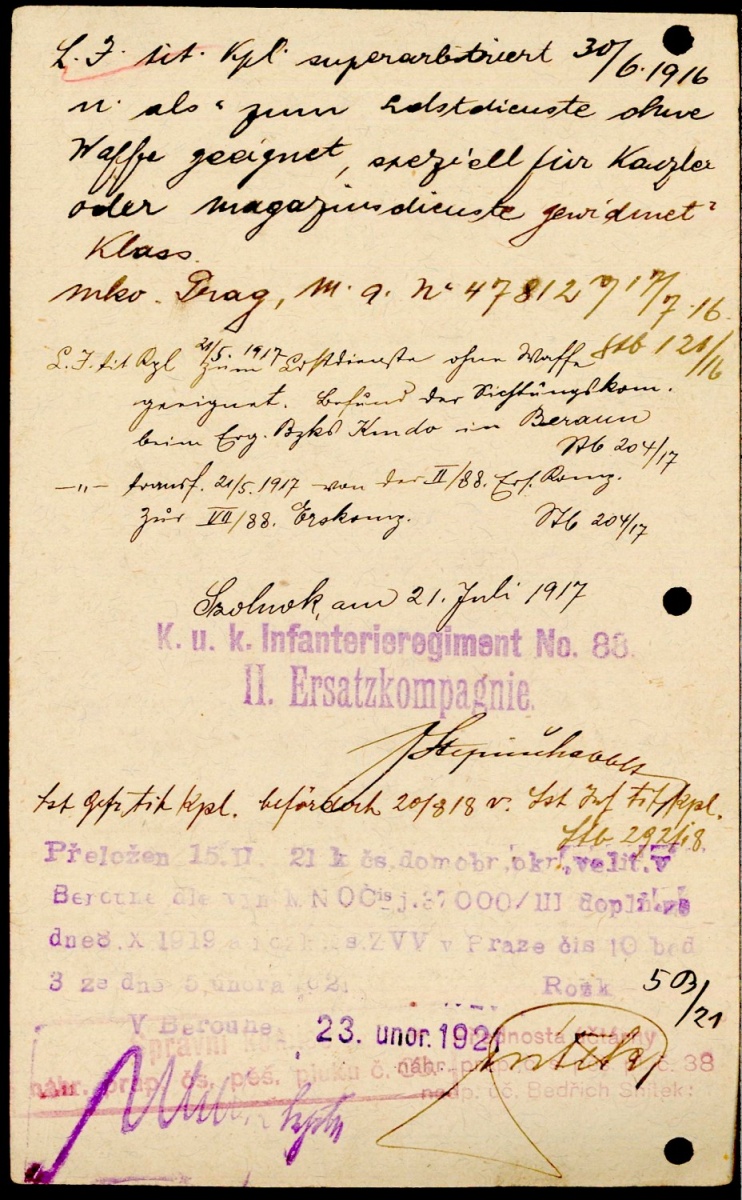 L. J. tit. Kpl. superarbitriert 30/6. 1916
u. als "zum Ldstdienste ohne
Waffe geeignet, speziell für Kanzlei
oder Magazinsdienste gewidmet"
Klass.
mko. Prag, M. a. No 47812 v 17/7. 16.
Stb 121/16
L. J. tit Kpl 21/5. 1917 zum Lstdienste ohne Waffe
geeignet. Befund der Sichtungskom.
beim Erg. Bzks Kmdo in Beraun
Stb 204/17
—„— transf. 21/5. 1917 von der II/88. Ers. Komp.
zur VII/88. Erskomp. Stb 204/17
Szolnok, am 21. Juli 1917
K. u. k. Infanterieregiment No. 88.
II. Ersatzkompagnie.
Lst Gefr tit Kpl. befördert 20/8 18 v. Lst Inf tit Kpl.
Stb 292/18.
Přeložen 15.II. 21 k čs.domobr.okr.velit.v
Berouně dle výn MNO čis j.37000/III doplň.ze
dne8.X 1919 a rozk. s.ZVV v Praze čis 10 bod
3 ze dne 5 února 1921 Rozk 503/21
V Berouně 23. únor. 1921
Přednosta účtárny
Správní
náhr. prap. čs. pěš. pluku č.
náhr. prap. č. 38
nadp. úč. Bedřich Šnítek: